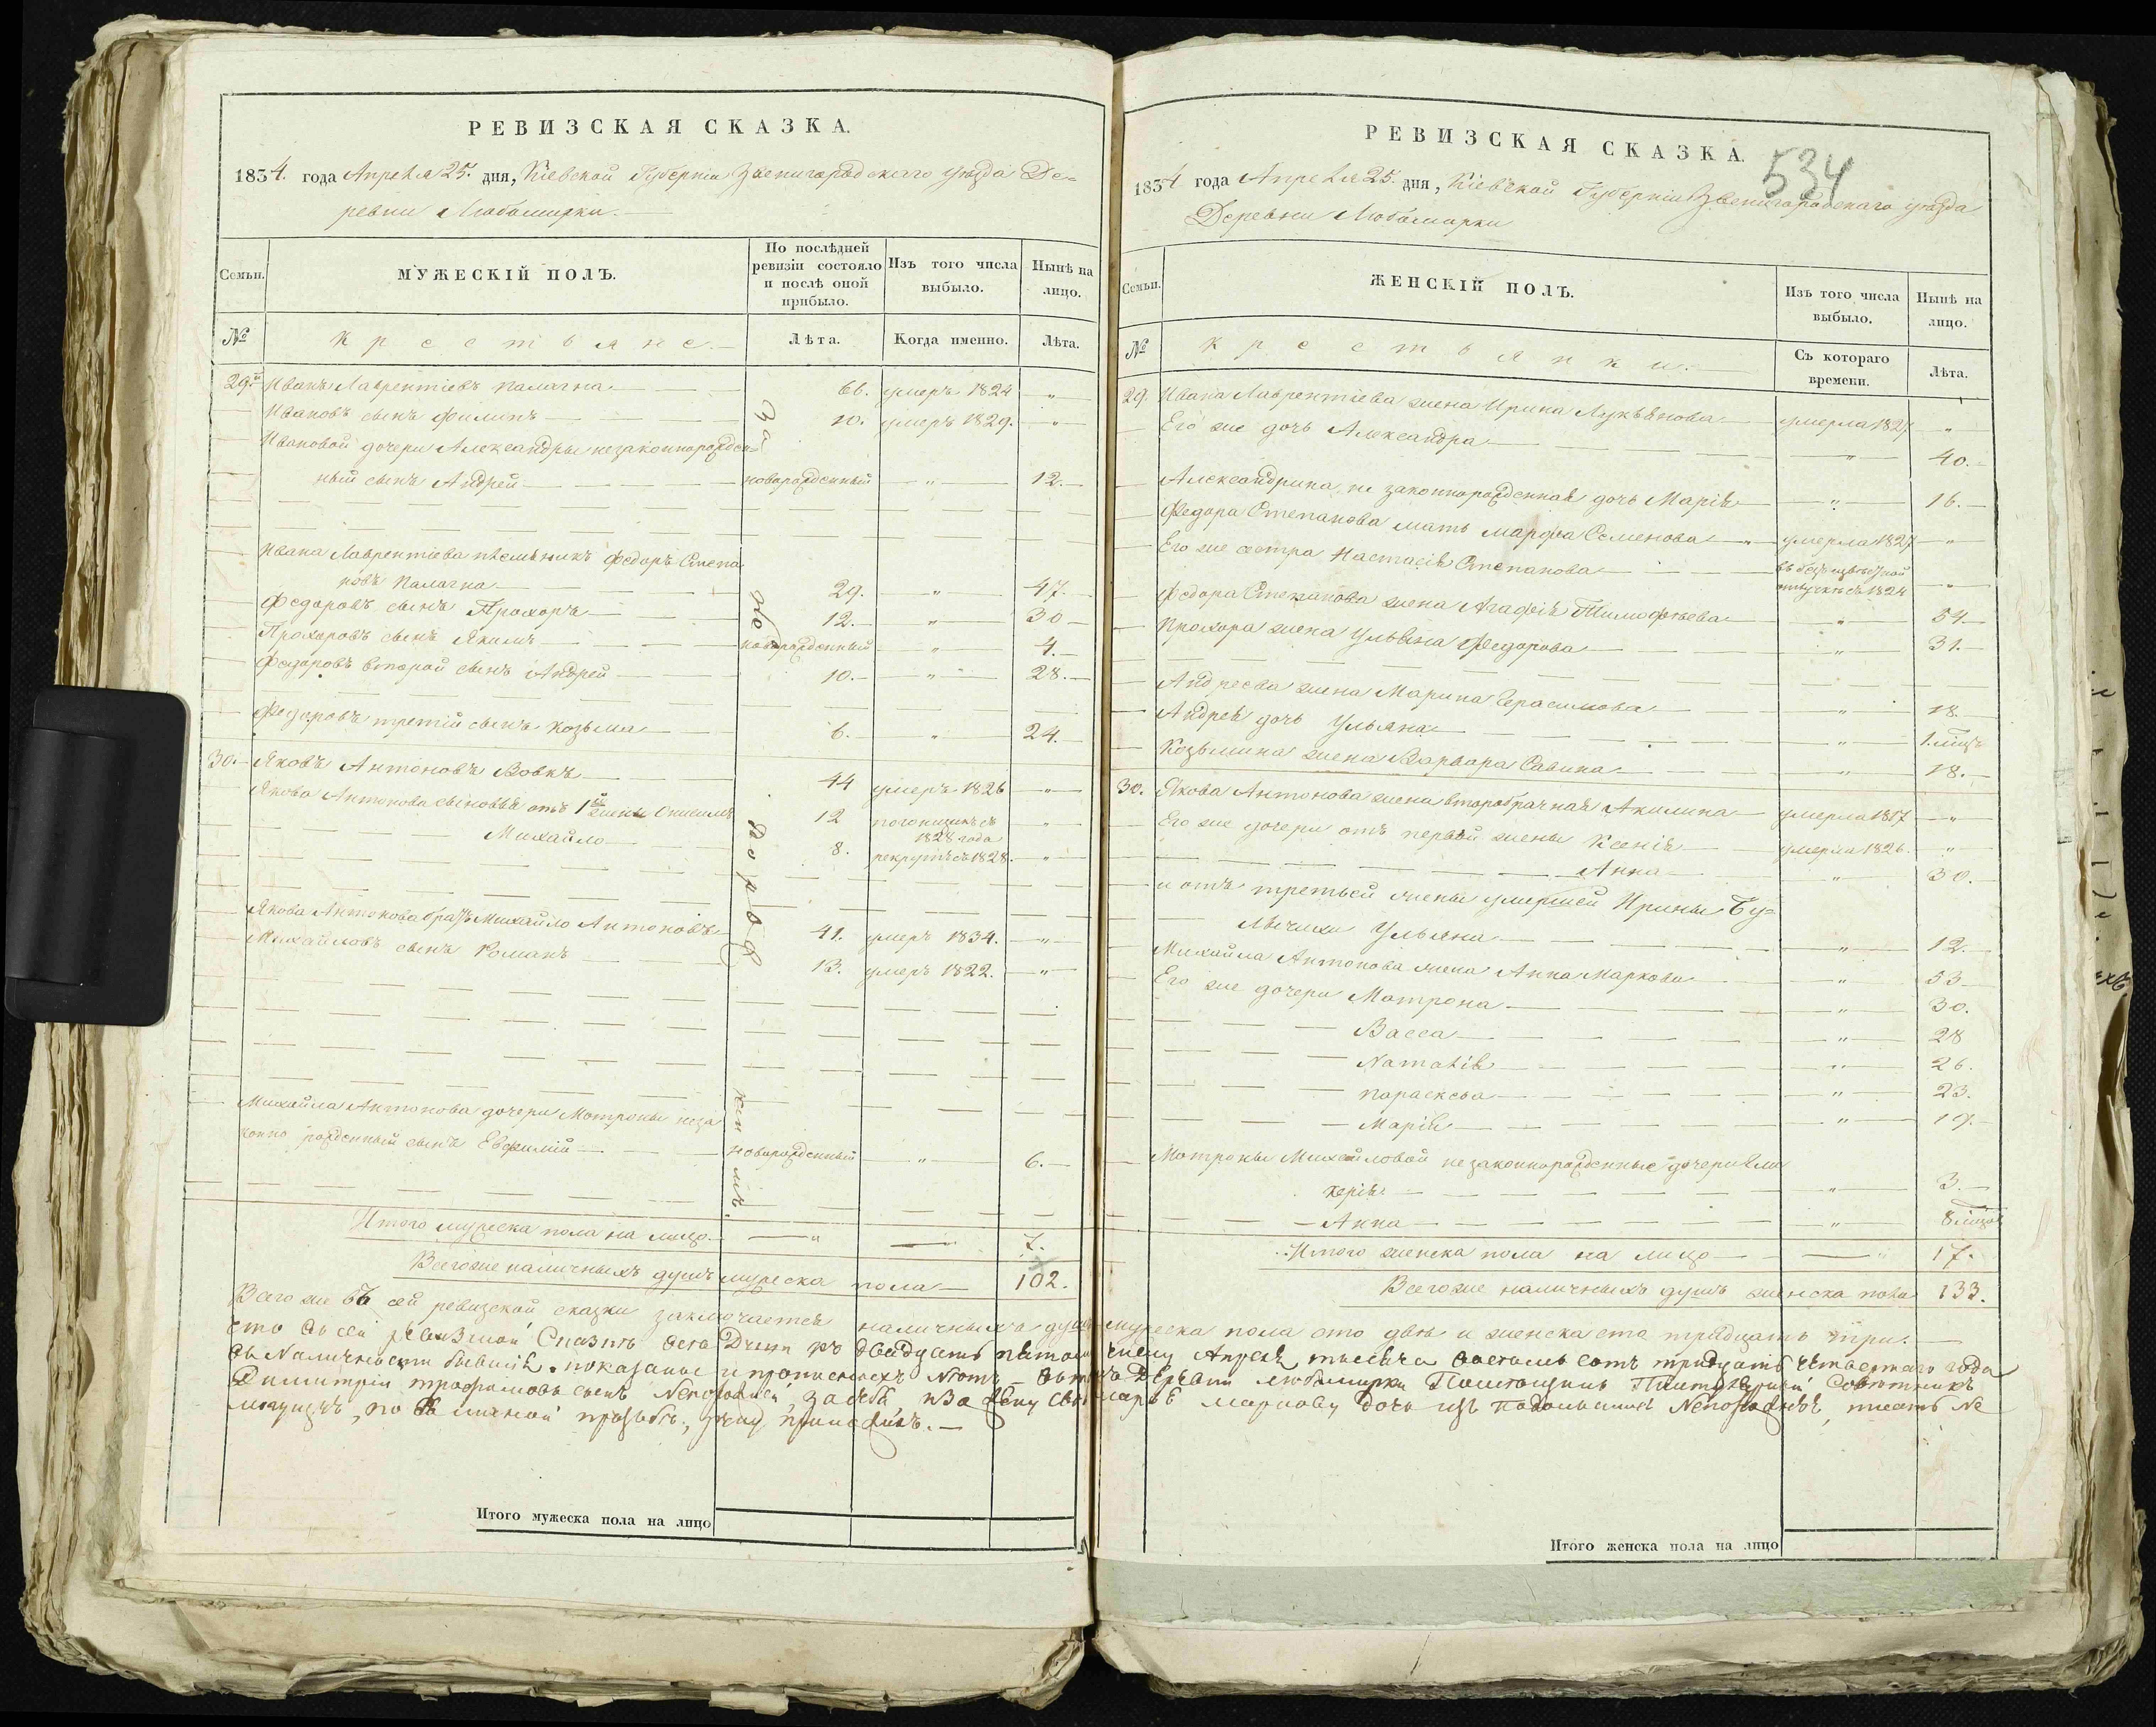 РЕВИЗСКАЯ СКАЗКА.
1834. года Апреля 25. дня, Кіевской Губерніи Звенигородского уѣзда Де-
ревни Любомирки.
Семьи.
МУЖЕСКІЙ ПОЛЪ.
По послѣдней ревизіи состояло и послѣ оной прибыло.
Изъ того числа выбыло.
Нынѣ на лицо.
№
Крестьяне.
Лѣта.
Когда именно.
Лѣта.
29.й Иванъ Лаврентіевъ Палагна 66. умеръ 1824 "
Ивановъ сынъ Филипъ 10. умеръ 1829. "
Ивановой дочери Александры незаконнорожден-
ный сынъ Андрей новорожденный " 12.
Ивана Лаврентіева племяникъ Федоръ Степа
новъ Палагна 29. " 47.
Федоровъ сынъ Прохоръ 12. " 30
Прохоровъ сынъ Якимъ новорожденный " 4.
Федоровъ второй сынъ Андрей 10. " 28.
Федоровъ третій сынъ Козьма 6. " 24.
30. Яковъ Антоновъ Вовкъ 44 умеръ 1826 "
Якова Антонова сыновья отъ 1й жены 12 1828 года "
Михайло 8. рекрутъ съ 1828. "
Якова Антонова братъ Михайло Антоновъ 41. умеръ 1834. "
Михайловъ сынъ Романъ 13. умеръ 1822. "
Михайла Антонова дочери Мотроны неза
конно рожденный сынъ Евфимій новорожденный " 6.
Итого мужеска пола на лицо " 7.
Всего же наличныхъ душъ мужеска пола 102.
РЕВИЗСКАЯ СКАЗКА.
534
1834 года Апреля 25. дня, Кіевской Губерніи Звенигородскаго уѣзда
Деревни Любомирки
Семьи.
ЖЕНСКІЙ ПОЛЪ.
Изъ того числа выбыло.
Нынѣ на лицо.
№
Крестьянки.
Съ котораго времени.
Лѣта.
29. Ивана Лаврентіева жена Ирина Лукьянова умерла 1827 "
Его же дочь Александра " 40.
Александрина не законнорожденная дочь Марія " 16.
Федора Степанова мать Марфа Семенова умерла 1827 "
Его же сестра Настасія Степанова въ безъизвѣстной
отлучкѣ съ 1824 "
Федора Степанова жена Агафія Тимофѣева " 54.
Прохора жена Ульяна Федорова " 31.
Андреева жена Марина Герасимова " 18.
Андрея дочь Ульяна " 1. мѣс
Козьмина жена Варвара Савина " 18.
30. Якова Антонова жена второбрачная Акилина умерла 1817 "
Его же дочери отъ первой жены Ксенія умерла 1826. "
Анна " 30.
и отъ третьей жены умершей Ирины Гу-
Ульяна " 12.
Михайла Антонова жена Анна Маркова " 53
Его же дочери Мотрона " 30.
Васса " 28
Наталія " 26.
Параскева " 23.
Марія " 19.
Мотроны Михайловой незаконнорожденные дочери Гли
керія " 3.
Анна " 8 мѣсяц
Итого женска пола на лицо " 17.
Всего же наличныхъ душъ женска пола 133.
За
Но
во
род
кимъ.
Всего же въ сей ревизской сказки заключается наличныхъ душъ мужеска пола сто двѣ и женска сто тридцать три.
что въ сей ревизской сказки двадцать пятому числу Апреля тысяча восемь сотъ тридцать четвертаго года
въ наличности бывшія показаны
Димитрій Трофимовъ сынъ Деревни Любомирки Помещикъ Титулярный Совѣтникъ
за себя, и за жену свою Марью Маркову дочь писать не
могущую, по ея личной прозьбѣ, руку приложилъ.
Итого мужеска пола на лицо
Итого женска пола на лицо